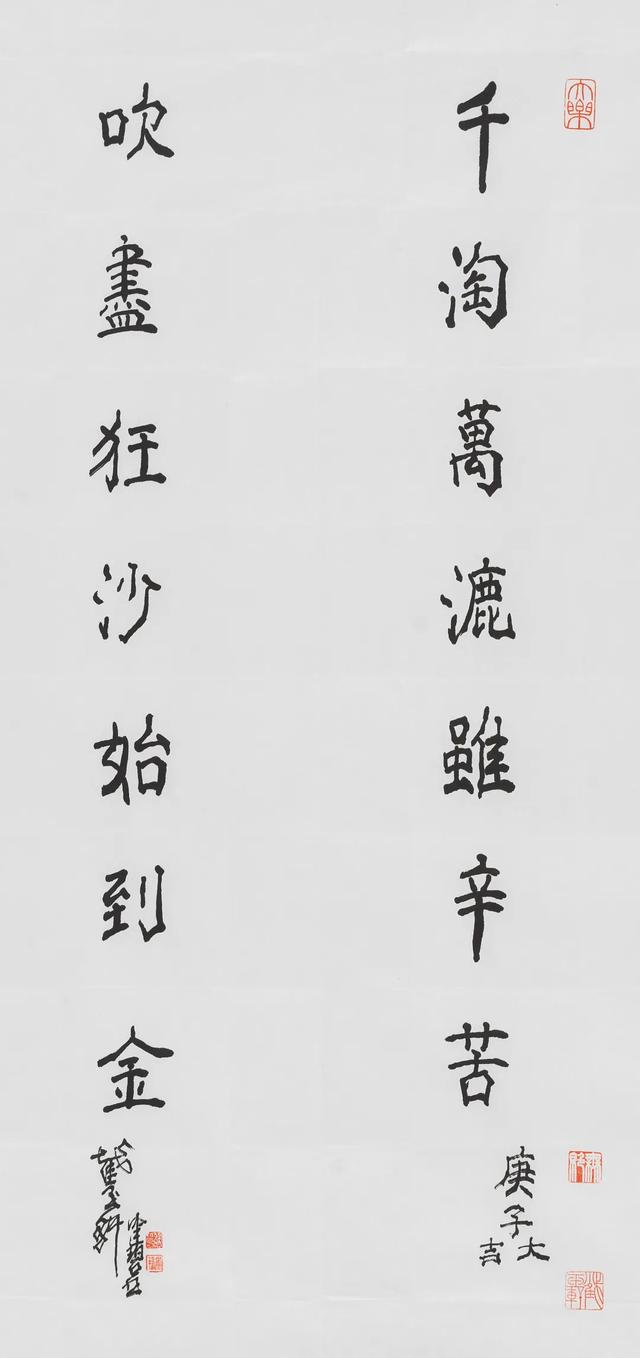 千淘萬漉雖辛苦
庚子大吉
吹盡狂沙始到金